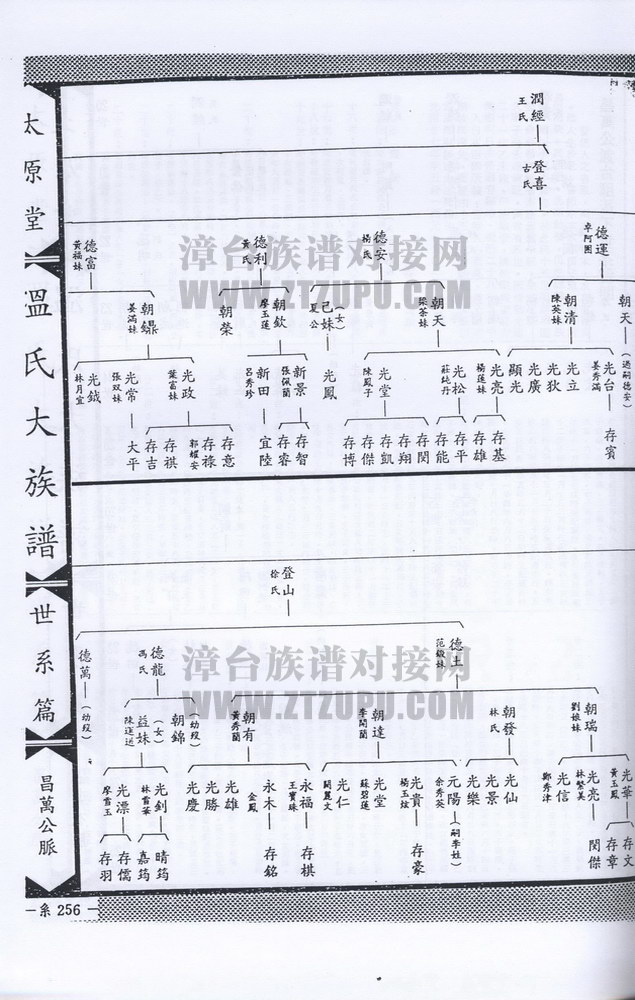 太原堂
溫氏大族譜
世系篇
昌萬公脈
系 256
漳台族谱对接网
WWW.ZTZUPU.COM
潤經
王氏
登喜
古氏
德運
辛阿圈
德安
楊氏
德利
黃氏
德富
黃福妹
朝天(過嗣德安)
朝清
陳英妹
朝天
梁荃妹
(女)
己妹
夏公
朝欽
廖玉蓮
朝榮
朝
姜滿妹
光台
姜秀滿
光立
光狄
光廣
顯光
光亮
楊蓮妹
光松
莊純丹
光堂
陳鳳子
光鳳
新景
張佩蘭
新田
呂秀珍
光政
葉富妹
光常
張双妹
光鉞
林月宣
存賓
存基
存雄
存平
存能
存閔
存翔
存凱
存傑
存博
存智
存睿
宜陸
存意
存祿
郭耀安
存祺
存吉
大平
登山
徐氏
德土
范緞妹
德龍
馮氏
德萬
(幼歿)
朝瑞
劉娘妹
朝發
林氏
朝達
李閃蘭
朝有
黃秀蘭
朝錦
(幼歿)
(女)
益妹
陳運送
光華
黃玉鳳
光亮
林繁美
光信
鄭秀津
光仙
光景
光樂
元陽(嗣李姓)
余秀英
光貴
楊玉炫
光堂
蘇碧蓮
光仁
關麗文
永福
王寶珠
永木
金鳳
光雄
光勝
光慶
光釗
林雪華
光漂
廖雪玉
存文
存章
閔傑
存豪
存棋
存銘
晴筠
嘉筠
存儒
存羽
漳台族谱对接网
WWW.ZTZUPU.COM